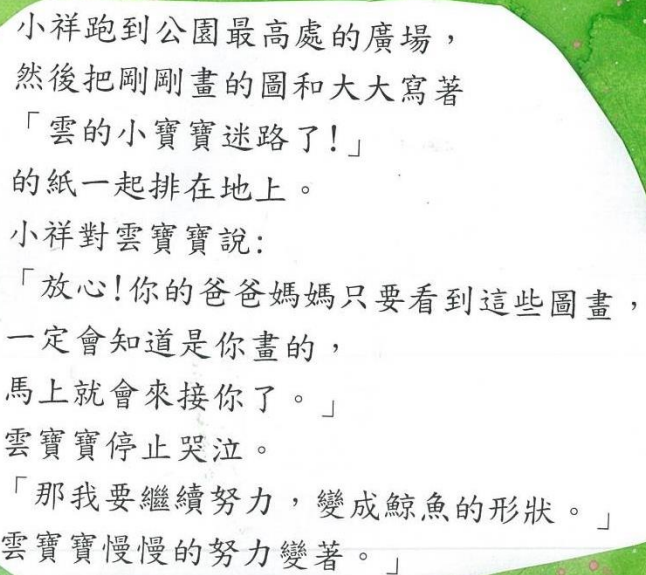 小祥跑到公園最高處的廣場，
然後把剛剛畫的圖和大大寫著
「雲的小寶寶迷路了！」
的紙一起排在地上。
小祥對雲寶寶說:
「放心!你的爸爸媽媽只要看到這些圖畫，
一定會知道是你畫的，
馬上就會來接你了。」
雲寶寶停止哭泣。
「那我要繼續努力，變成鯨魚的形狀。」
雲寶寶慢慢的努力變著。」